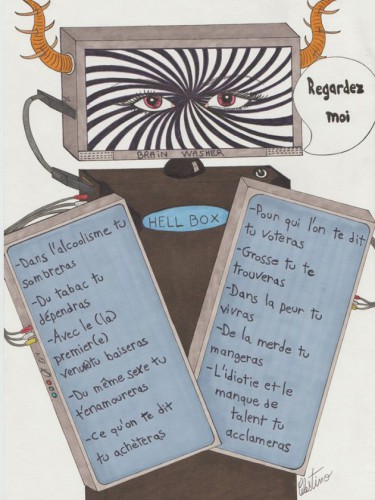 Regardez
moi
BRAIN WASHER
HELL BOX
-Dans l'alcoolisme tu
sombreras
-Du tabac tu
dépendras
-Avec le (la)
premier(e)
venu tu baiseras
-Du même sexe tu
t'enamoureras
-Ce qu'on te dit
tu achèteras
-Pour qui l'on te dit
tu voteras
-Grosse tu te
trouveras
-Dans la peur tu
vivras
-De la merde tu
mangeras
-L'idiotie et le
manque de
talent tu
acclameras